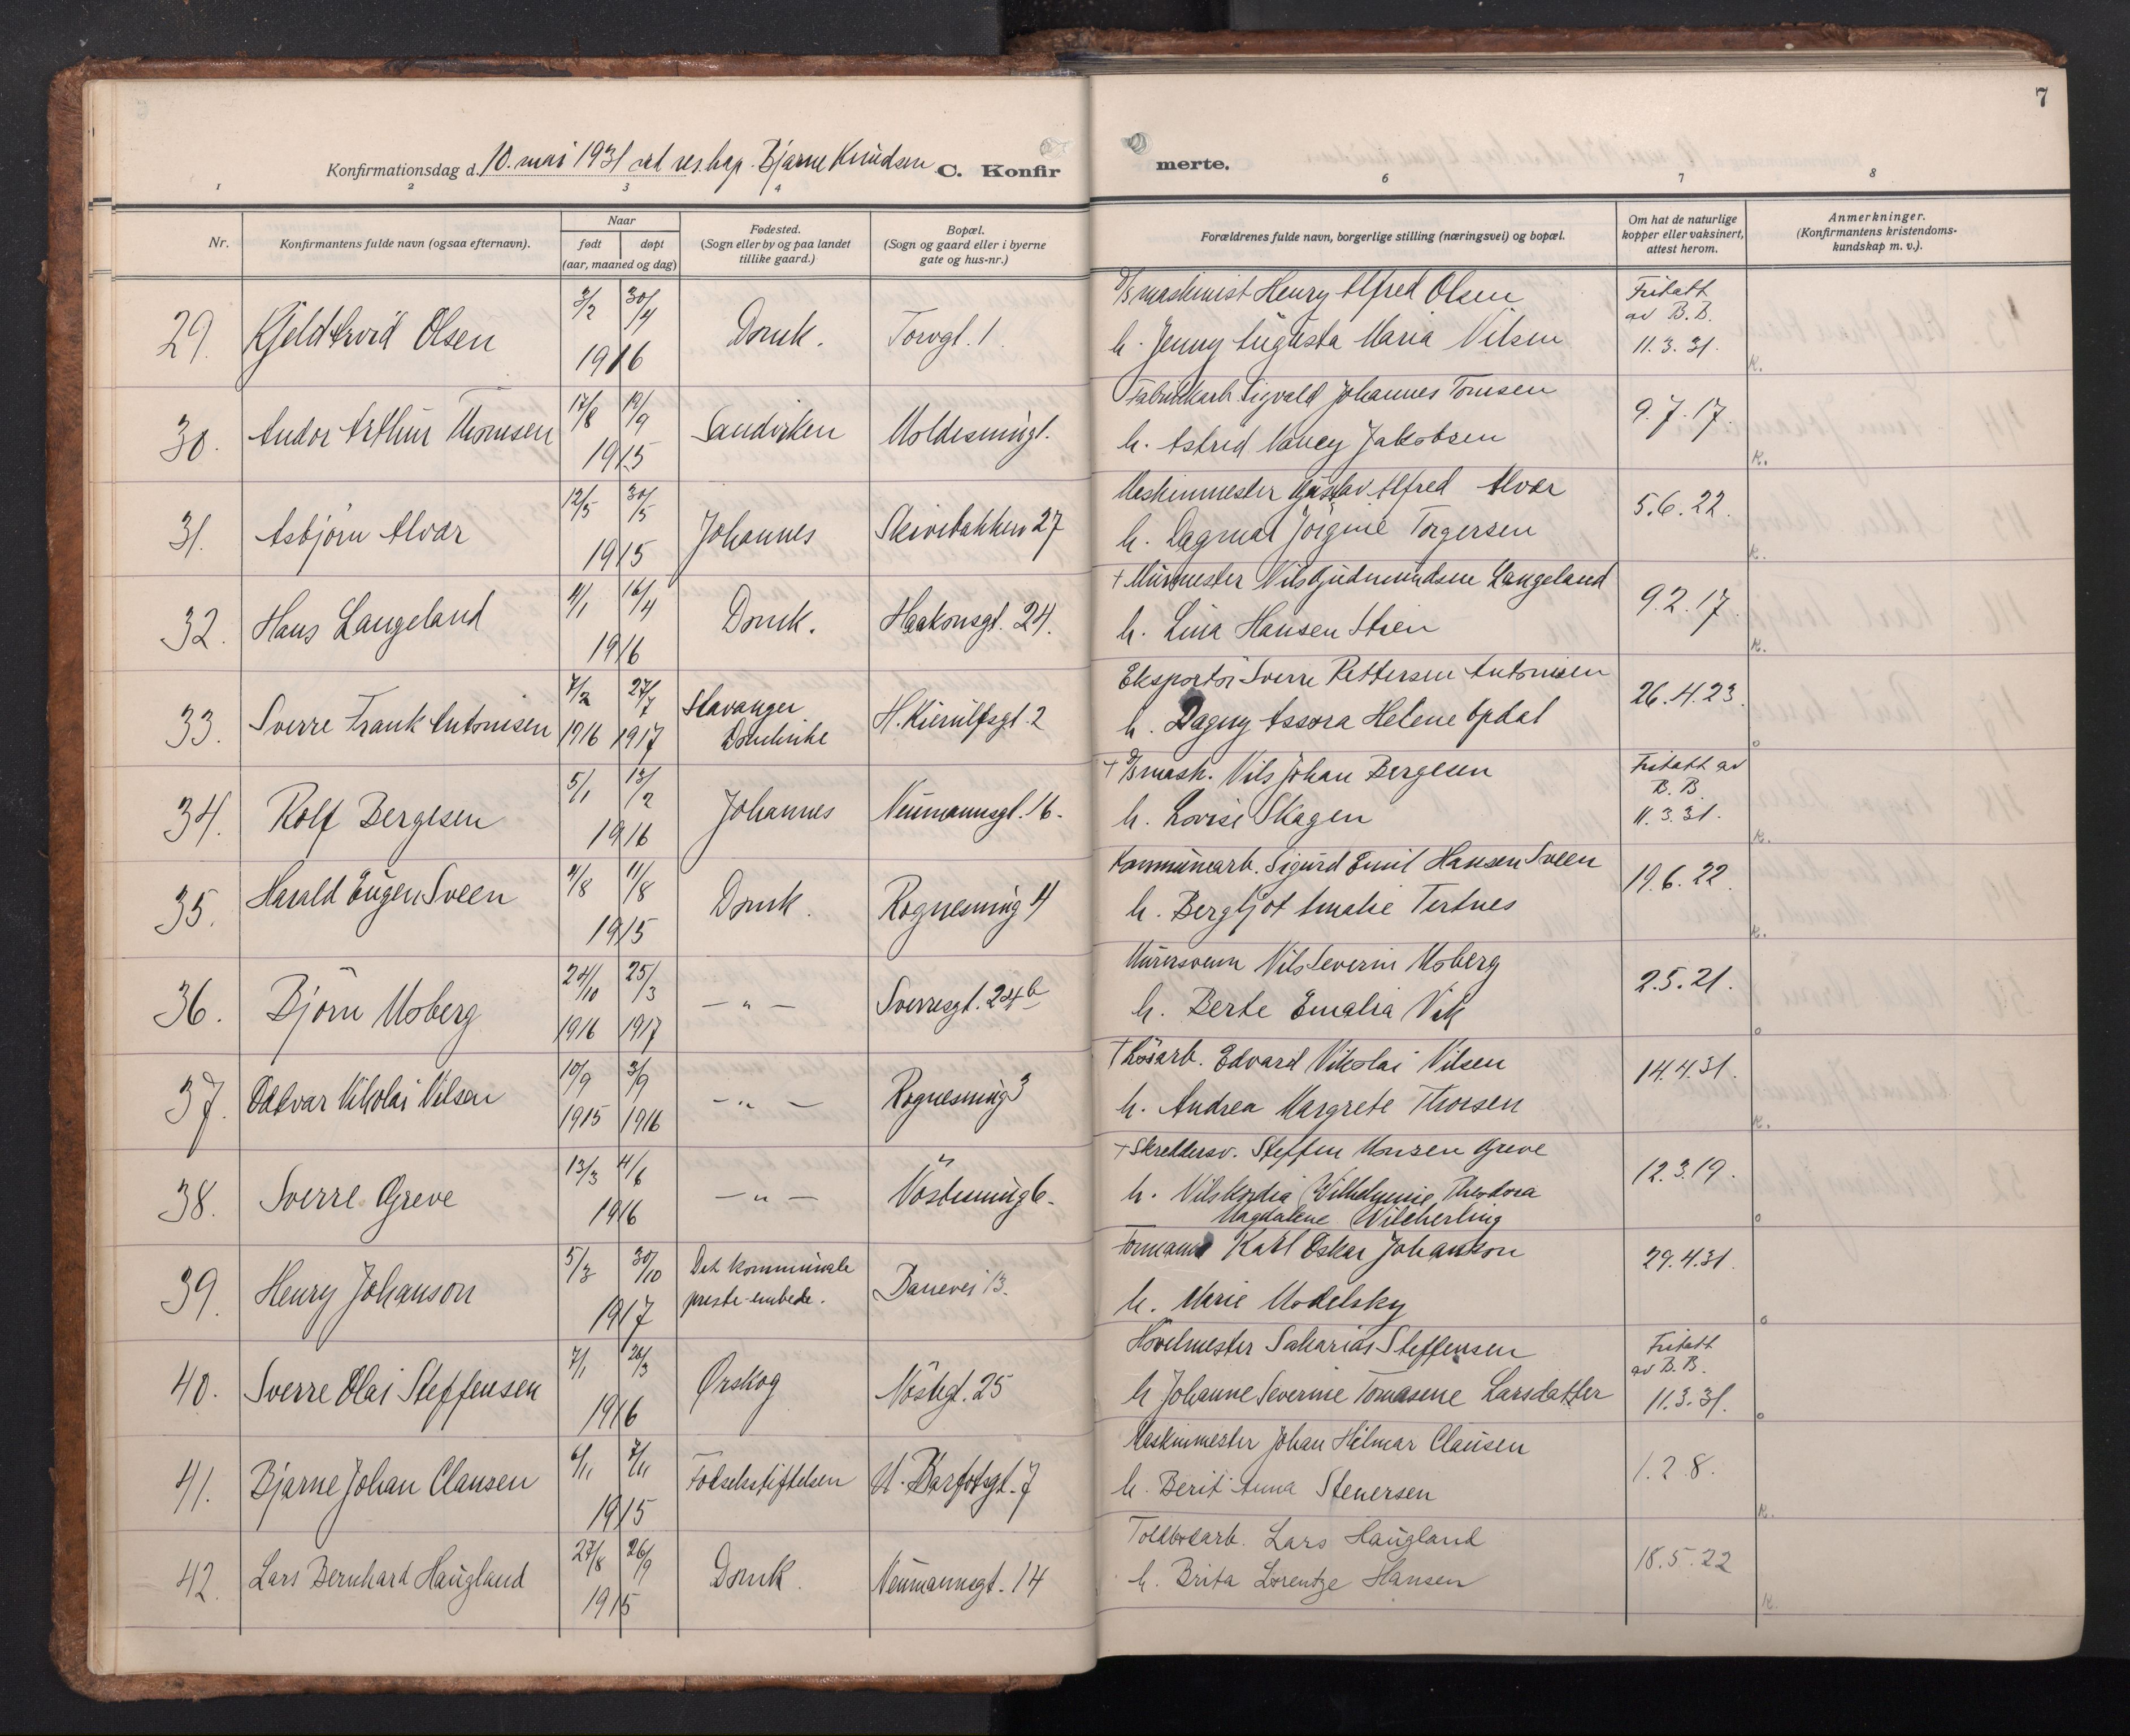 7
Konfirmationsdag d. 10. mai 1931 ved res. kap. Bjarne Knudsen C. Konfir merte.
1 2 3 4 6 7 8
Nr. Konfirmantens fulde navn (ogsaa efternavn). Naar født døpt (aar, maaned og dag) Fødested. (Sogn eller by og paa landet tillike gaard.) Bopæl. (Sogn og gaard eller i byerne gate og hus-nr.) Forældrenes fulde navn, borgerlige stilling (næringsvei) og bopæl. Om hat de naturlige kopper eller vaksinert, attest herom. Anmerkninger. (Konfirmantens kristendoms-kundskap m. v.).
29. Kjeld Arvid Olsen 3/2 30/4 1916 Domk. Torvgt. 1 maskinist Henry Alfred Olsen Fritatt av B. B. 11.3.31. K.
h. Jenny Augusta Maria Nilsen
30. Andor Arthur Thomsen 17/8 19/9 1915 Sandviken Moldesmugt. Fabrikkarb. Sigvald Johannes Tomsen 9.7.17. K.
h. Astrid Nancy Jakobsen
31. Asbjörn Alvær 12/5 30/5 1915 Johannes Skivebakken 27 Maskinmester Gustav Alfred Alvær 5.6.22. K.
h. Dagmar Jörgine Torgersen
32. Hans Langeland 4/1 16/4 1916 Domk. Haakonsgt. 24. + Murmester Nils Gudmundsen Langeland 9.2.17. K.
h. Lina Hansen Stien
33. Sverre Frank Antonisen 7/2 1916 27/7 1917 Stavanger Domkirke H. Kierulfsgt. 2 Eksportör Sverre Pettersen Antonisen 26.4.23. o
h. Dagny Assora Helene Opdal
34. Rolf Bergesen 5/1 13/2 1916 Johannes Neumannsgt. 16. + mask. Nils Johan Bergesen Fritatt av B. B. 11.3.31. K.
h. Lovise Skagen
35. Harald Eugen Sveen 9/8 11/8 1915 Domk. Rognesmug 4 Kommunearb. Sigurd Emil Hansen Sveen 19.6.22. K.
h. Bergljot Amalie Tertnes
36. Björn Moberg 24/10 1916 25/3 1917 — " — Sverresgt. 24 b Murersvenn Nils Severin Moberg 2.5.21. o
h. Berte Emalia Vik
37. Oddvar Nikolai Nilsen 10/9 1915 3/9 1916 — " — Rognesmug 3 + Løsarb. Edvard Nikolai Nilsen 14.4.31. K.
h. Andrea Margrete Thorsen
38. Sverre Greve 13/3 4/6 1916 — " — Nöstesmug 6. + Skreddersv. Steffen Monsen Greve 12.3.19. o
h. Nilskordia Wilhelmine Theodora
Magdalene Wilcherling
39. Henry Johanson 5/3 30/10 1917 Det kommunale preste-embede. Danevei 13. Formann Karl Oskar Johanson 29.4.31. o
h. Marie Modelsky
40. Sverre Olai Steffensen 7/1 26/3 1916 Ørskog Nöstegt. 25 Hövelmester Sakarias Steffensen Fritatt av B. B. 11.3.31. o
h Johanne Severine Tomasene Larsdatter
41. Bjarne Johan Clausen 6/11 7/11 1915 Födselsstiftelsen M. Barfotsgt. 7 Maskinmester Johan Hilmar Clausen 1.2.8. K.
h. Berit Anna Stenersen
42. Lars Bernhard Haugland 27/8 26/9 1915 Domk. Neumannsgt. 14 Toldbodarb. Lars Haugland 18.5.22 K.
h. Brita Lorentze Hansen